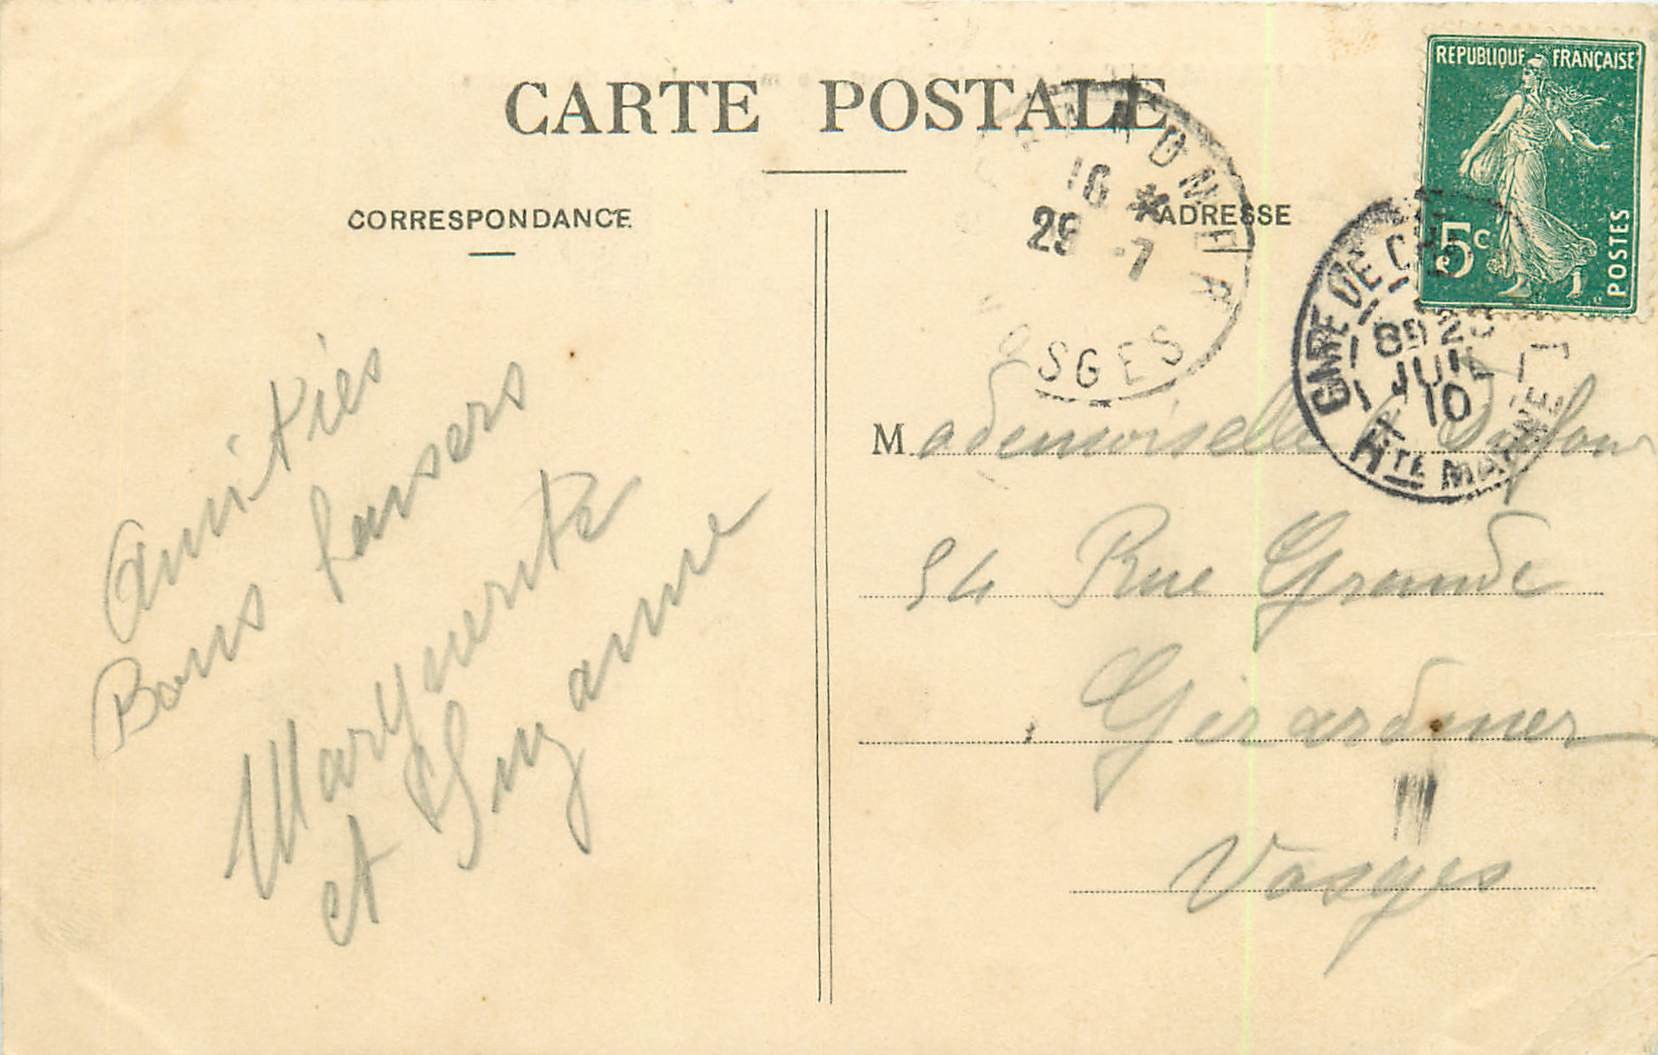 CARTE POSTALE
CORRESPONDANCE
ADRESSE
REPUBLIQUE FRANÇAISE
5c
POSTES
16 *
29 -7
VOSGES
GARE DE CH
JUIL
10
HTE MARNE
Amitiés
Bons baisers
Marguerite
et Suzanne
Mademoiselle Dufour
54 Rue Grande
Gérardmer
Vosges